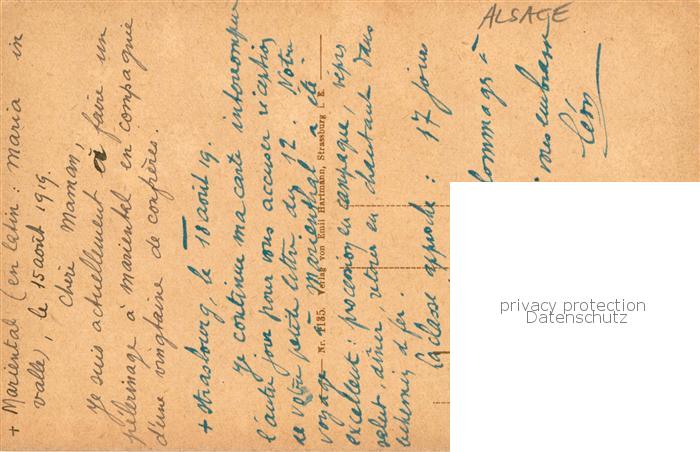 ALSACE
+ Mariental (en latin : Maria in
valle), le 15 août 1919.
Chère Maman,
Je suis actuellement à faire un
pèlerinage à mariental en compagnie
d'une vingtaine de confrères.
+ Strasbourg, le 18 août 19.
Je continue ma carte interrompue
l'autre jour pour vous accuser réception
de votre petite lettre du 12. Notre
voyage à Marienthal a été
excellent : procession en campagne,
salut, dîner, retour en chantant dans
chemin de fer.
La classe approche : 17 jours
hommages à
vous embrasse
Léon
Nr. 1135. Verlag von Emil Hartmann, Strassburg i. E.
privacy protection
Datenschutz